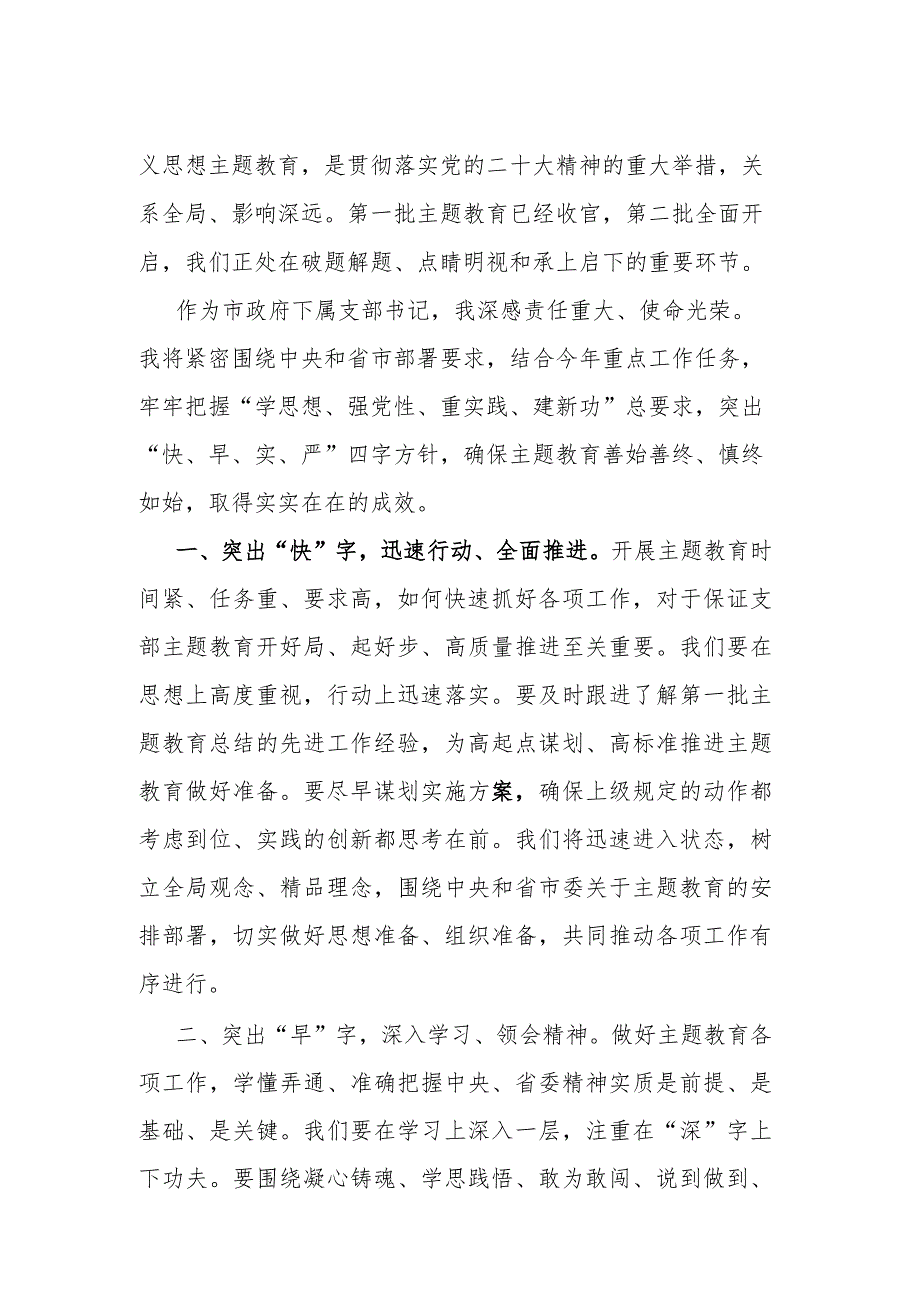 义思想主题教育，是贯彻落实党的二十大精神的重大举措，关
系全局、影响深远。第一批主题教育已经收官，第二批全面开
启，我们正处在破题解题、点睛明视和承上启下的重要环节。
作为市政府下属支部书记，我深感责任重大、使命光荣。
我将紧密围绕中央和省市部署要求，结合今年重点工作任务，
牢牢把握“学思想、强党性、重实践、建新功”总要求，突出
“快、早、实、严”四字方针，确保主题教育善始善终、慎终
如始，取得实实在在的成效。
一、突出“快”字，迅速行动、全面推进。开展主题教育时
间紧、任务重、要求高，如何快速抓好各项工作，对于保证支
部主题教育开好局、起好步、高质量推进至关重要。我们要在
思想上高度重视，行动上迅速落实。要及时跟进了解第一批主
题教育总结的先进工作经验，为高起点谋划、高标准推进主题
教育做好准备。要尽早谋划实施方案，确保上级规定的动作都
考虑到位、实践的创新都思考在前。我们将迅速进入状态，树
立全局观念、精品理念，围绕中央和省市委关于主题教育的安
排部署，切实做好思想准备、组织准备，共同推动各项工作有
序进行。
二、突出“早”字，深入学习、领会精神。做好主题教育各
项工作，学懂弄通、准确把握中央、省委精神实质是前提、是
基础、是关键。我们要在学习上深入一层，注重在“深”字上
下功夫。要围绕凝心铸魂、学思践悟、敢为敢闯、说到做到、